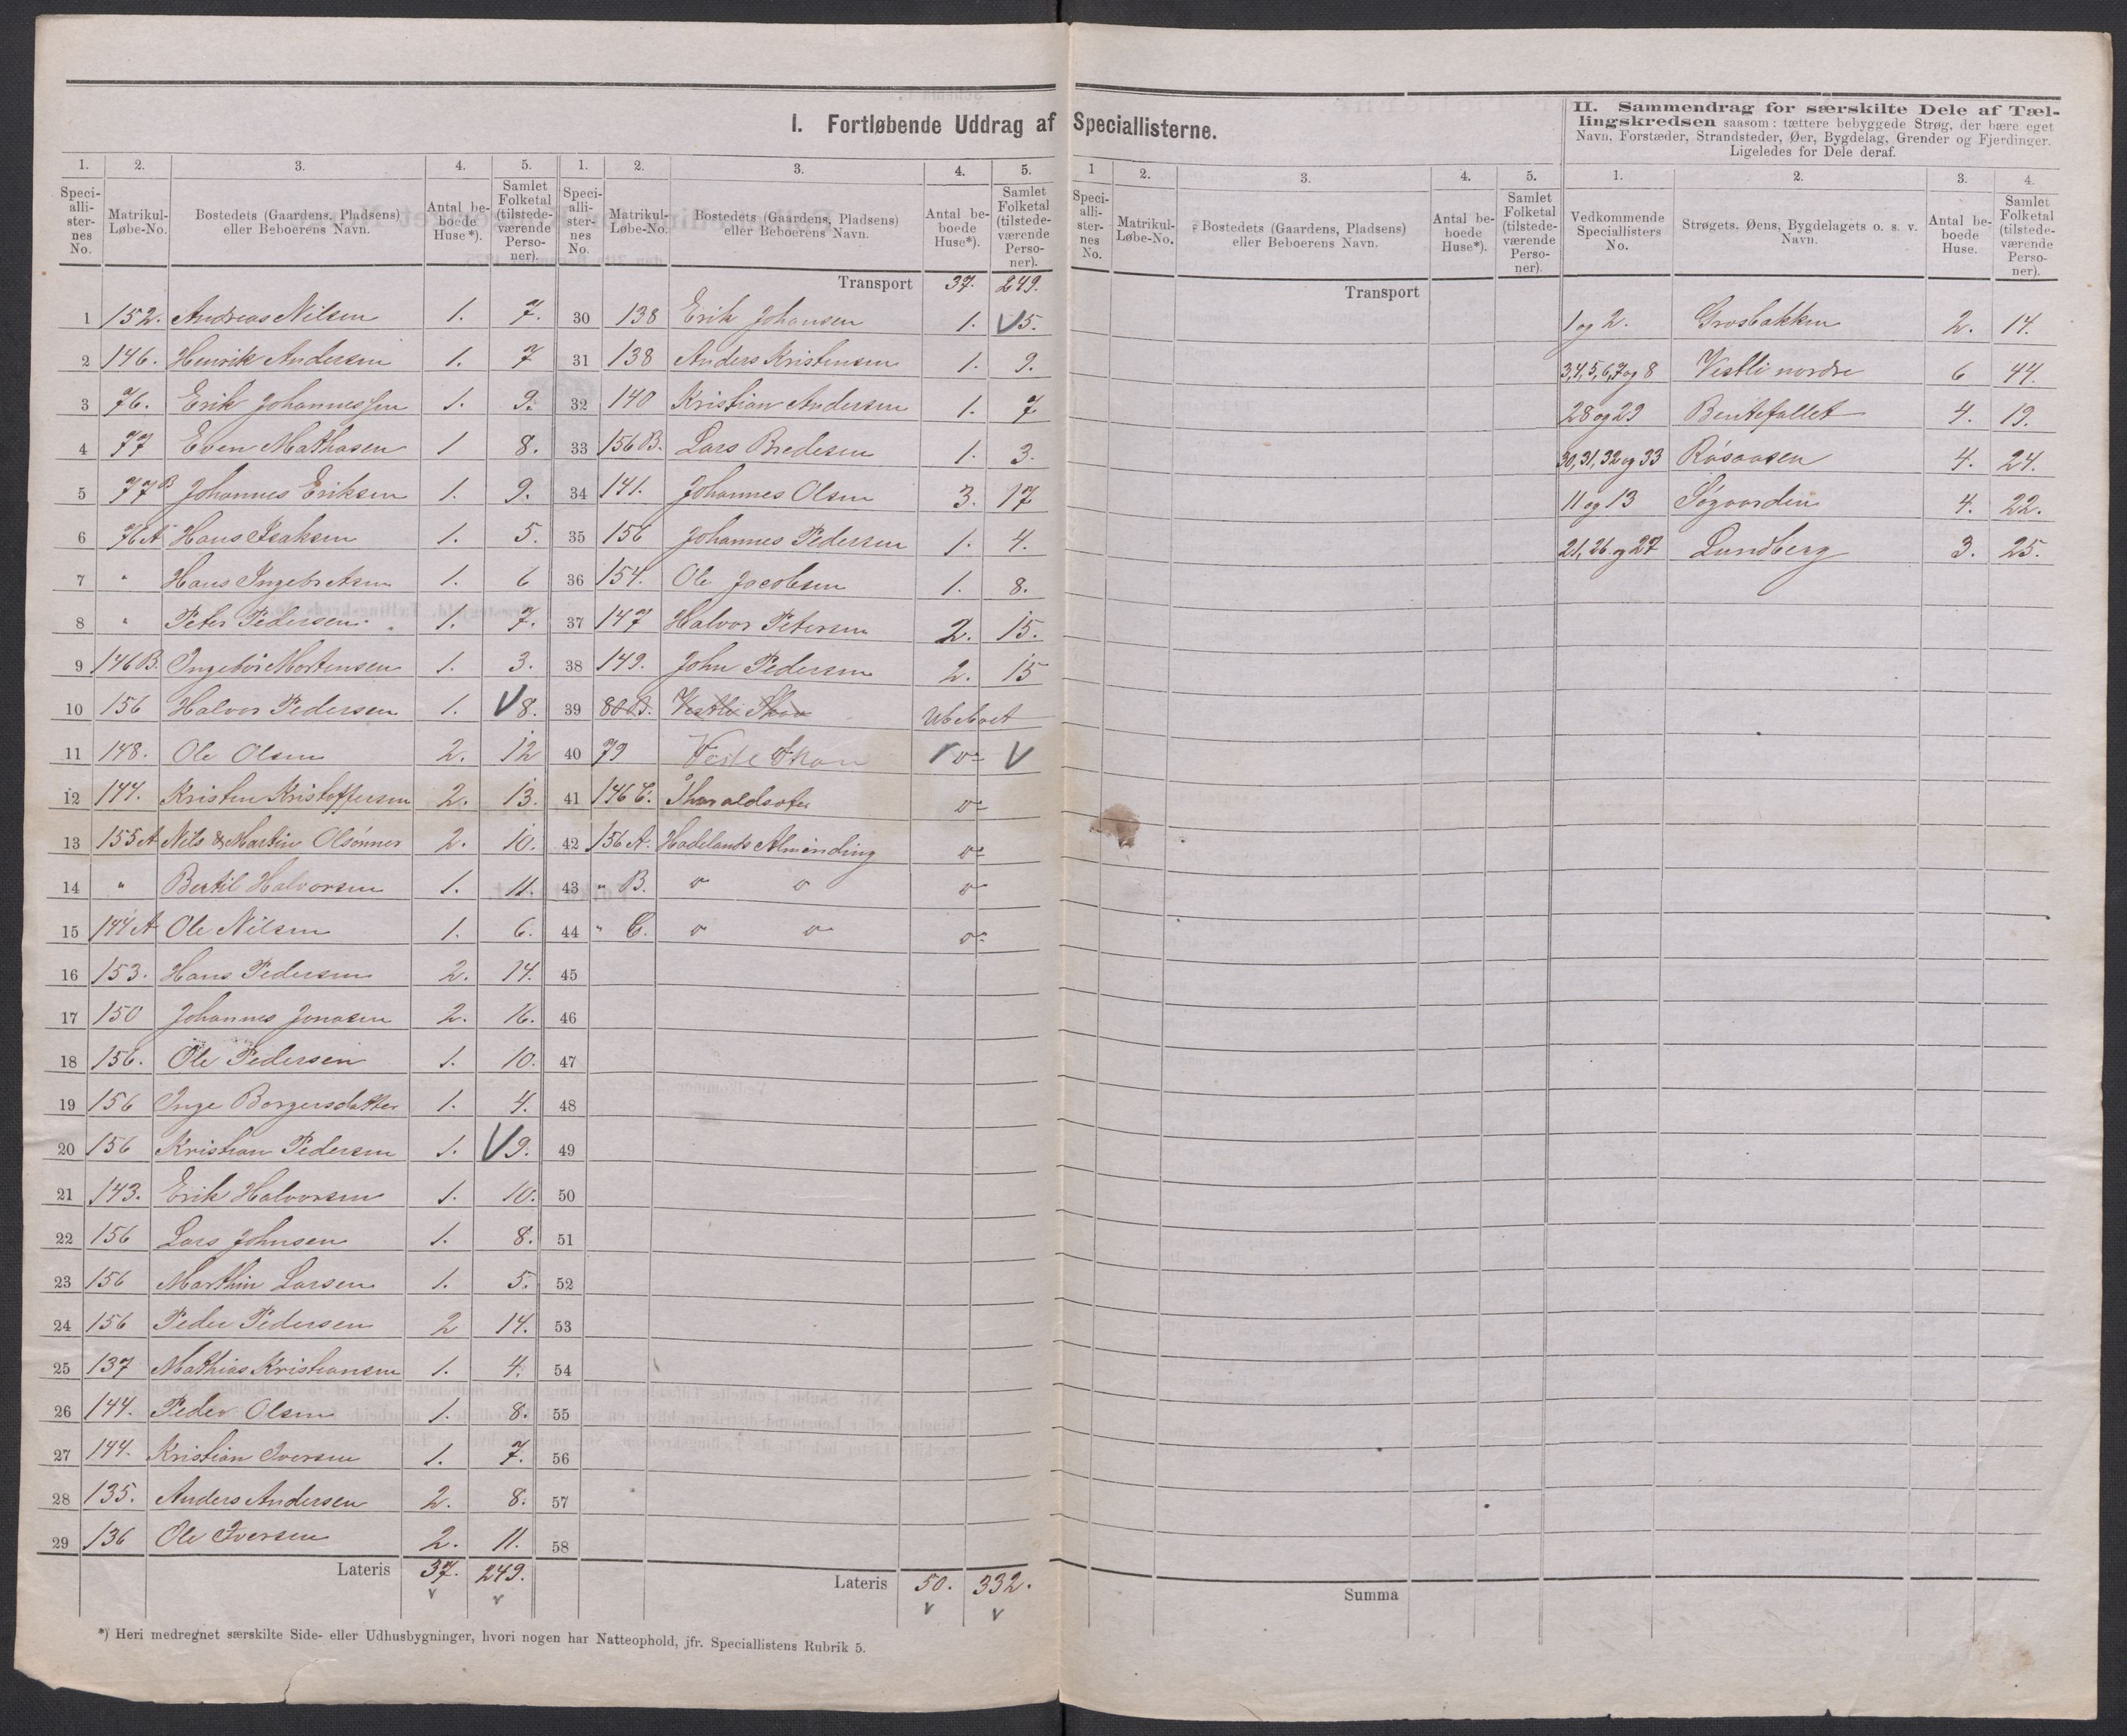 I. Fortløbende Uddrag af Speciallisterne.
1. 2. 3. 4. 5.
Speciallisternes No. Matrikul-Løbe-No. Bostedets (Gaardens, Pladsens) eller Beboerens Navn. Antal beboede Huse*). Samlet Folketal (tilstedeværende Personer).
1 152. Andreas Nilsen 1. 7.
2 146. Henrik Andersen 1. 7
3 76. Erik Johannessen 1. 9.
4 77 Even Mathasen 1 8.
5 77B Johannes Eriksen 1. 9.
6 76A Hans Isaksen 1. 5.
7 " Hans Ingebretsen 1. 6
8 " Peter Pedersen 1. 7.
9 146B. Ingebör Mortensen 1. 3.
10 156 Halvor Pedersen 1. V 8.
11 148. Ole Olsen 2. 12
12 144. Kristen Kristoffersen 2. 13.
13 155A Nils & Martin Olsönner 2. 10.
14 " Bertil Halvorsen 1. 11.
15 144A Ole Nilsen 1. 6.
16 153. Hans Pedersen 2. 14.
17 150 Johannes Jonasen 2. 16.
18 156. Ole Pedersen 1. 10.
19 156 Inge Borgersdatter 1. 4.
20 156 Kristian Pedersen 1. V 9.
21 143. Erik Halvorsen 1. 10.
22 156 Lars Johnsen 1. 8.
23 156 Marthin Larsen 1. 5.
24 156 Peder Pedersen 2 14.
25 137 Mathias Kristiansen 1. 4.
26 144. Peder Olsen 1. 8.
27 144. Kristian Iversen 1. 7.
28 135. Anders Andersen 2. 8.
29 136 Ole Iversen 2. 11.
Lateris 37. 249.
v v
1. 2. 3. 4. 5.
Speciallisternes No. Matrikul-Løbe-No. Bostedets (Gaardens, Pladsens) eller Beboerens Navn. Antal beboede Huse*). Samlet Folketal (tilstedeværende Personer).
Transport 37. 249.
30 138 Erik Johansen 1. V 5.
31 138 Anders Kristensen 1. 9.
32 140 Kristian Andersen 1. 7
33 156B. Lars Bredesen 1. 3.
34 141. Johannes Olsen 3. 17
35 156 Johannes Pedersen 1. 4.
36 154. Ole Jacobsen 1. 8.
37 147 Halvor Petersen 2. 15.
38 149. John Pedersen 2. 15
39 80B. Vestli Skov Ubeboet
40 79 V o V
41 146C. Tharaldsæter o
42 156A. Hadelands Almending o
43 " B. o o o
44 " C. o o o
45
46
47
48
49
50
51
52
53
54
55
56
57
58
Lateris 50. 332.
v v
*) Heri medregnet særskilte Side- eller Udhusbygninger, hvori nogen har Natteophold, jfr. Speciallistens Rubrik 5.
1 2. 3. 4. 5.
Speciallisternes No. Matrikul-Løbe-No. Bostedets (Gaardens, Pladsens) eller Beboerens Navn. Antal beboede Huse*). Samlet Folketal (tilstedeværende Personer).
Transport
Summa
II. Sammendrag for særskilte Dele af Tæl-
lingskredsen saasom: tættere bebyggede Strøg, der bære eget
Navn, Forstæder, Strandsteder, Øer, Bygdelag, Grender og Fjerdinger.
Ligeledes for Dele deraf.
1. 2. 3. 4.
Vedkommende Speciallisters No. Strøgets, Øens, Bygdelagets o. s. v. Navn. Antal beboede Huse. Samlet Folketal (tilstedeværende Personer).
1 og 2. Grosbakken 2. 14.
3,4,5,6,7 og 8 Vestli nordre 6 44.
28 og 29 Bentefallet 4. 19.
30,31,32 og 33 Råsaasen 4. 24.
11 og 13 Søgaarden 4. 22.
21,26 og 27 Lundberg 3. 25.